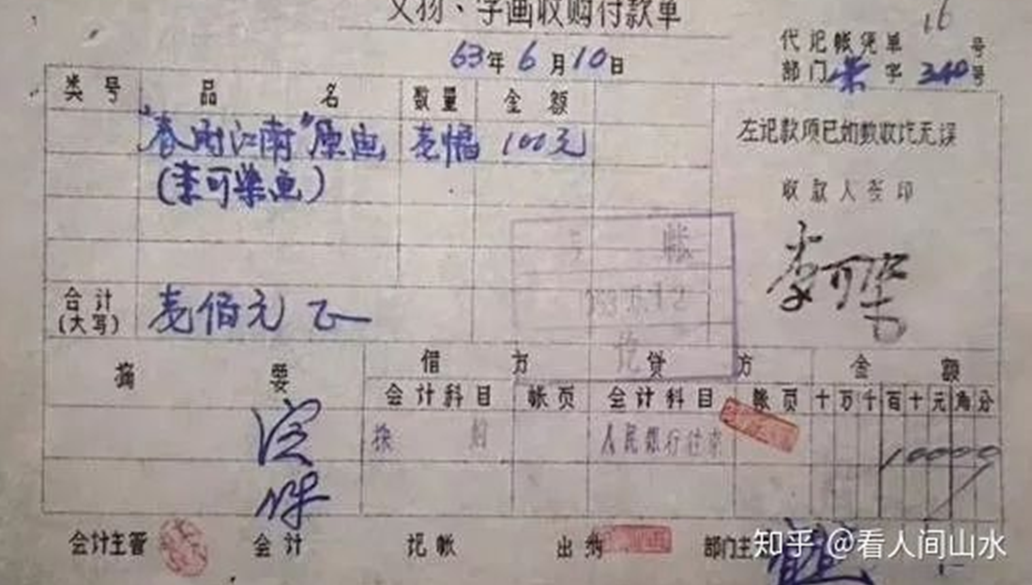 文物、字画收购付款单
63年6月10日
代记帐凭单 16 号
部门 荣 字 340 号
类号 品名 数量 金额
"春雨江南"原画 壹幅 100元
(李可染画)
左记款项已如数收讫无误
收款人签印
李可染
合计(大写) 壹佰元正
摘要 借方 贷方 金额
会计科目 帐页 会计科目 帐页 十万千百十元角分
人民银行往来 10000
会计主管 会计 记帐 出纳 部门主
知乎 @看人间山水